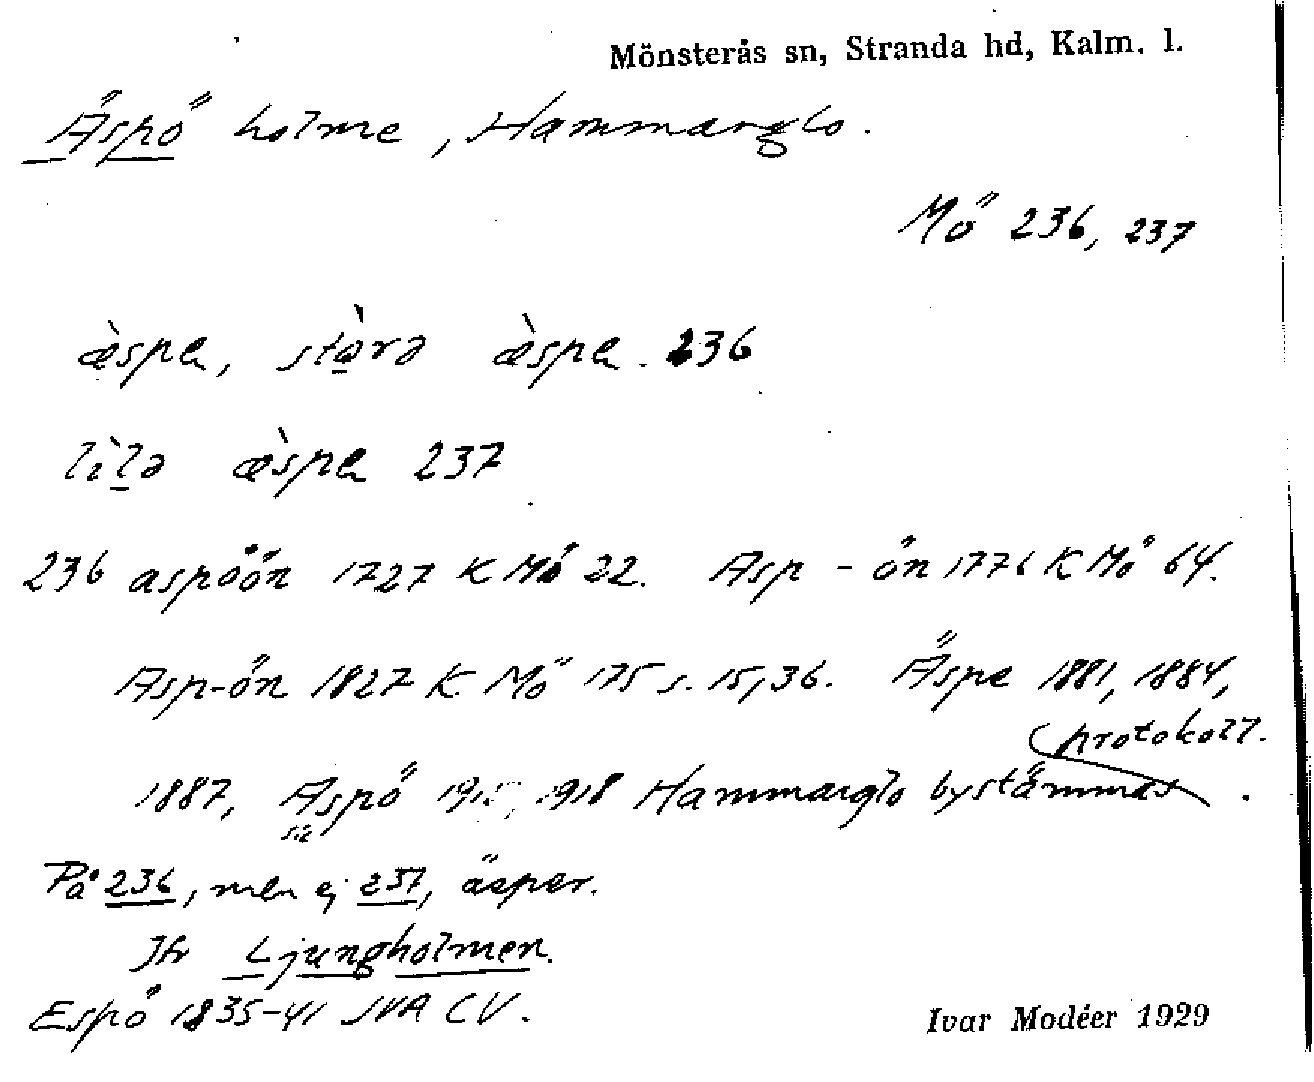 Mönsterås sn, Stranda hd, Kalm. l.
Äspö holme, Hammarglo.
Mö 236, 237
æ̀spɐ, stàrə æ̀spɐ. 236
lìlə æ̀spɐ 237
236 aspöön 1727 K Mö 22. Asp-ön 1776 K Mö 64.
Asp-ön 1827 K Mö 175 s. 15, 36. Äspe 1881, 1884,
protokoll.
1887, Aspö 1918 Hammarglo bystämmas .
På 236, men ej 237, äsper.
Jfr Ljungholmen.
Espö 1835-41 JVA CV.
Ivar Modéer 1929